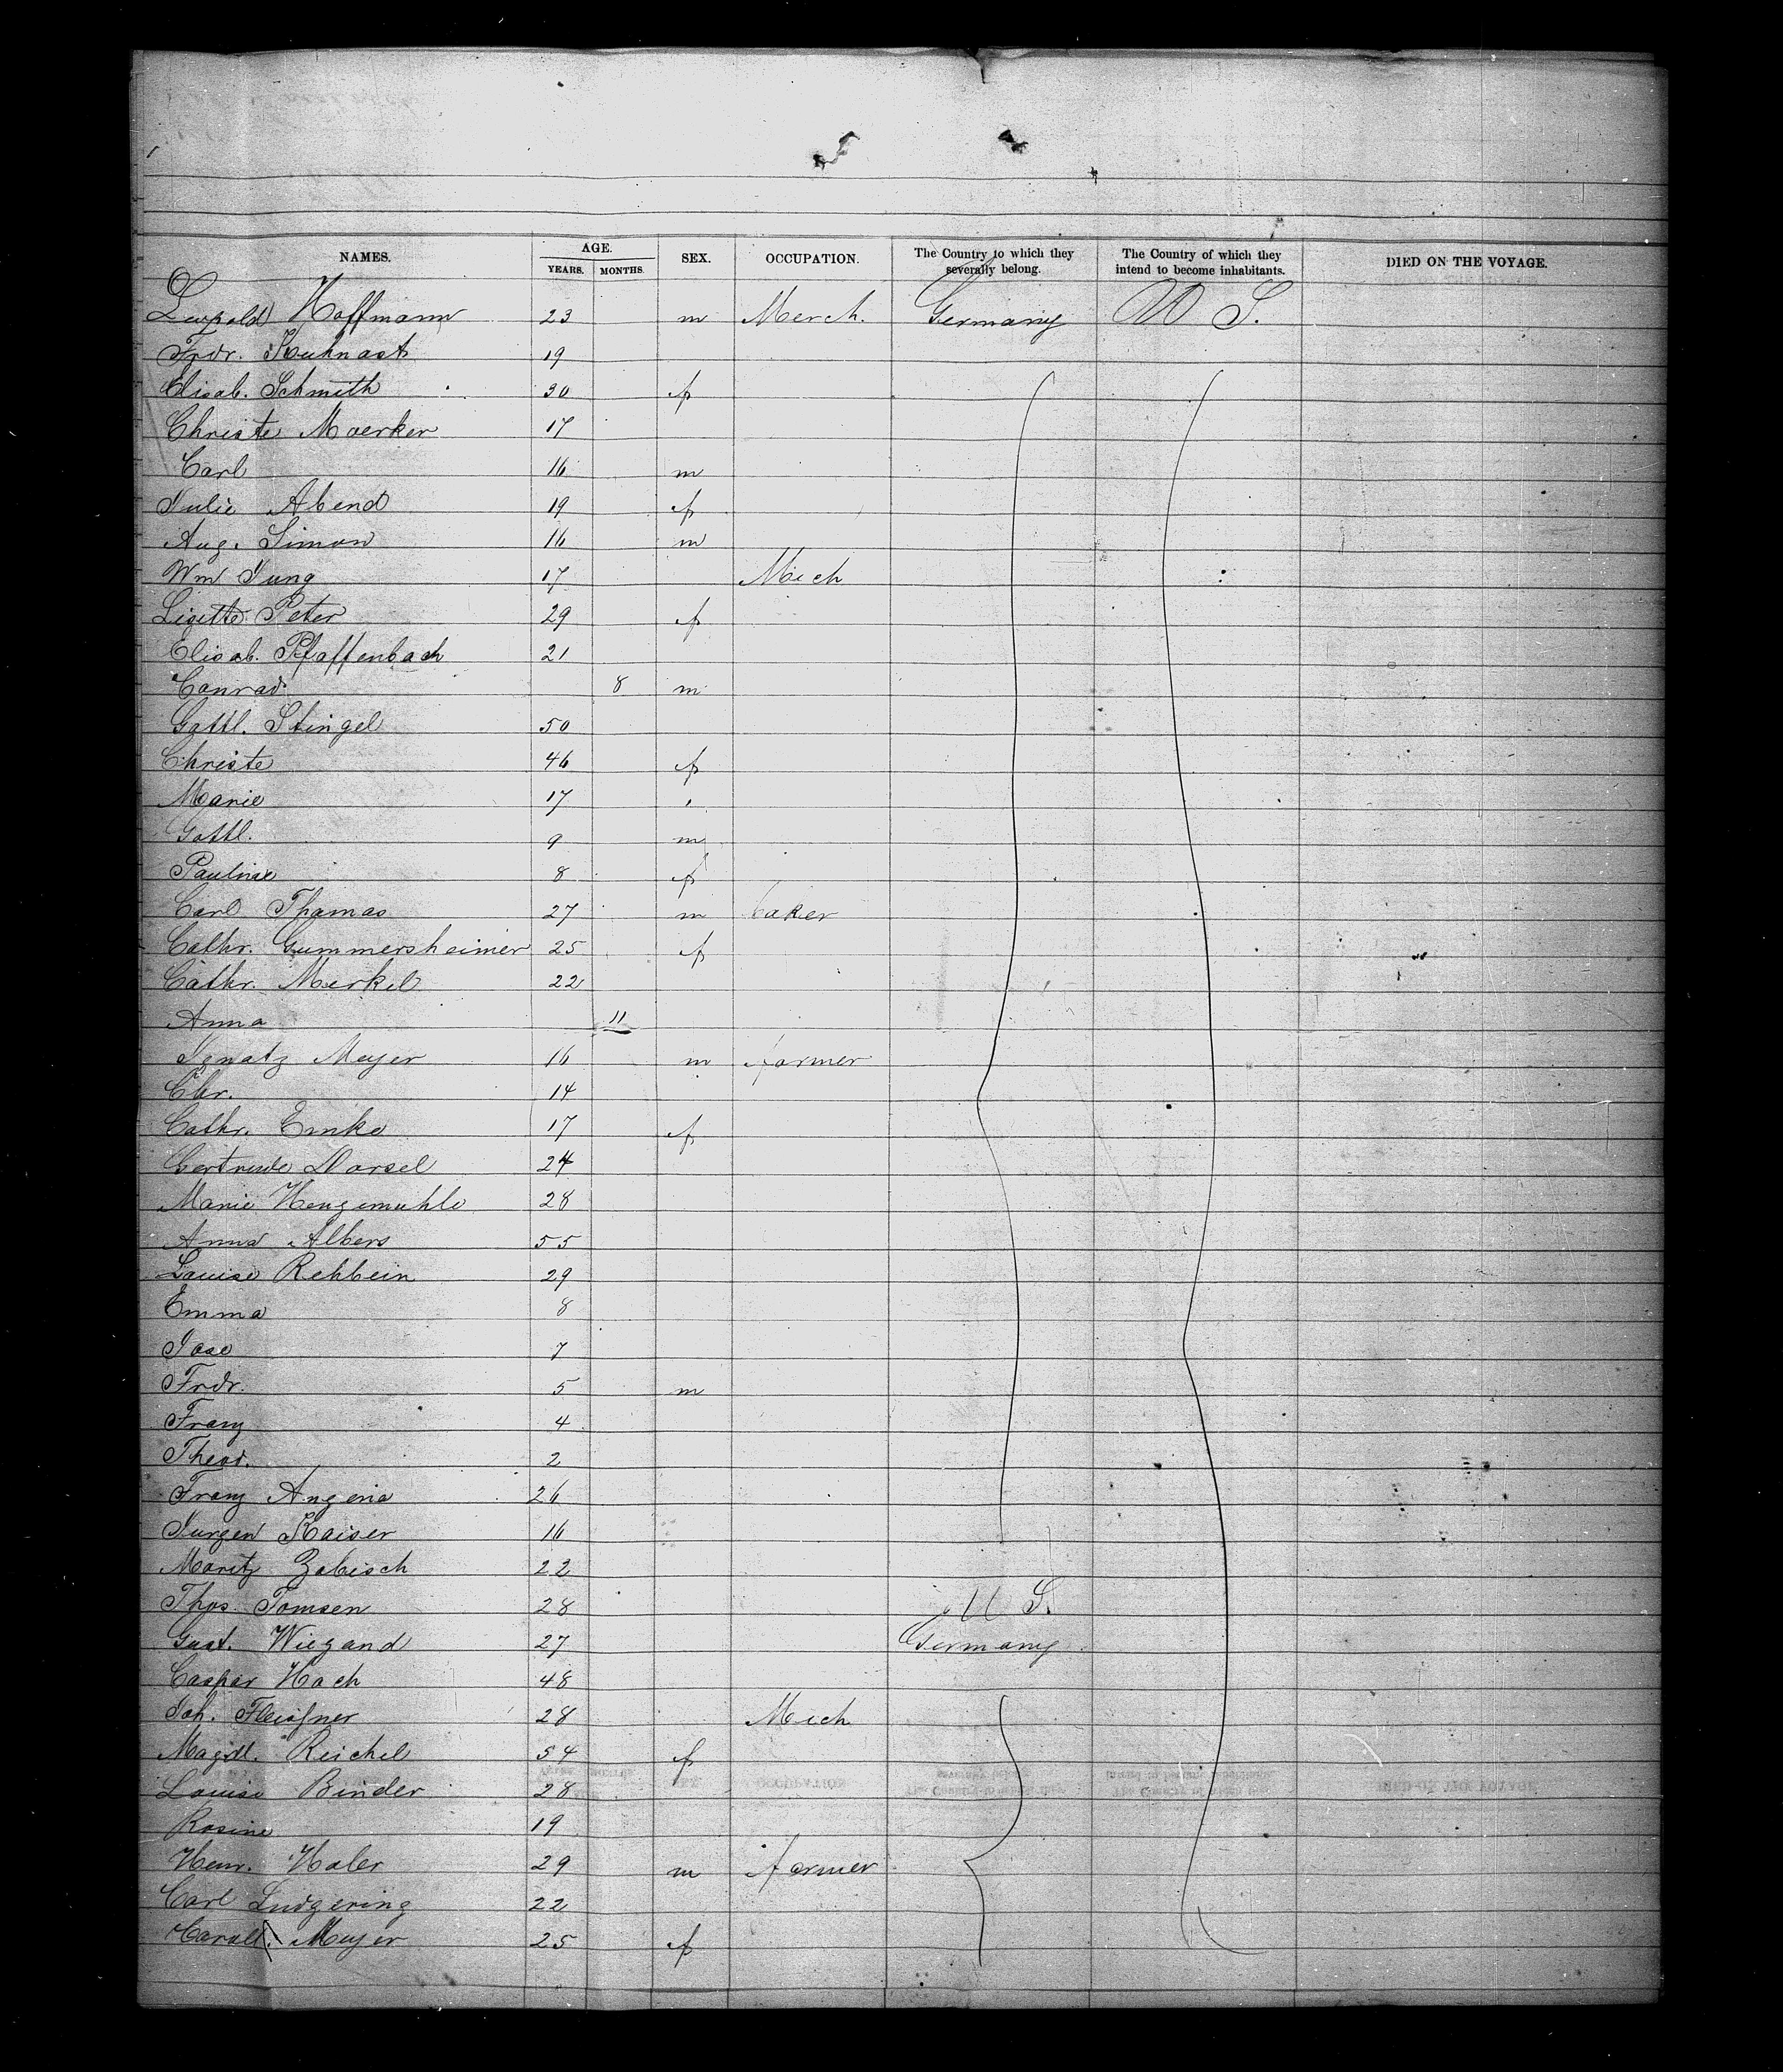 NAMES. AGE. SEX. OCCUPATION. The Country to which they severally belong. The Country of which they intend to become inhabitants. DIED ON THE VOYAGE.
YEARS. MONTHS.
Leopold Hoffmann 23 m Merch. Germany U S.
Frdr. Kuhnast 19
Elisab. Schmith 30 f
Christe Moerker 17
Carl 16 m
Julie Abend 19 f
Aug. Simon 16 m
Wm Jung 17 Mech
Lisette Peter 29 f
Elisab. Pfaffenbach 21
Conrad 8 m
Gottl. Stingel 50
Christe 46 f
Marie 17 "
Gottl. 9 m
Pauline 8 f
Carl Thomas 27 m baker
Cathr. Gummersheimer 25 f
Cathr. Merkel 22
Anna 11
Ignatz Meyer 16 m farmer
Chr. 14
Cathr. Emke 17 f
Gertrude Dorsel 24
Marie Hengemuhle 28
Anna Albers 55
Louise Rehbein 29
Emma 8
Jose 7
Frdr. 5 m
Franz 4
Theod. 2
Franz Angene 26
Jurgen Kaiser 16
Moritz Zobisch 22
Thos. Tomsen 28 U S.
Gust. Wiegand 27 Germany
Caspar Hoch 48
Joh. Fleissner 28 Mech
Magdl. Reichel 54 f
Louise Binder 28
Rosine 19
Henr. Holer 29 m farmer
Carl Ludgering 22
Meyer 25 f